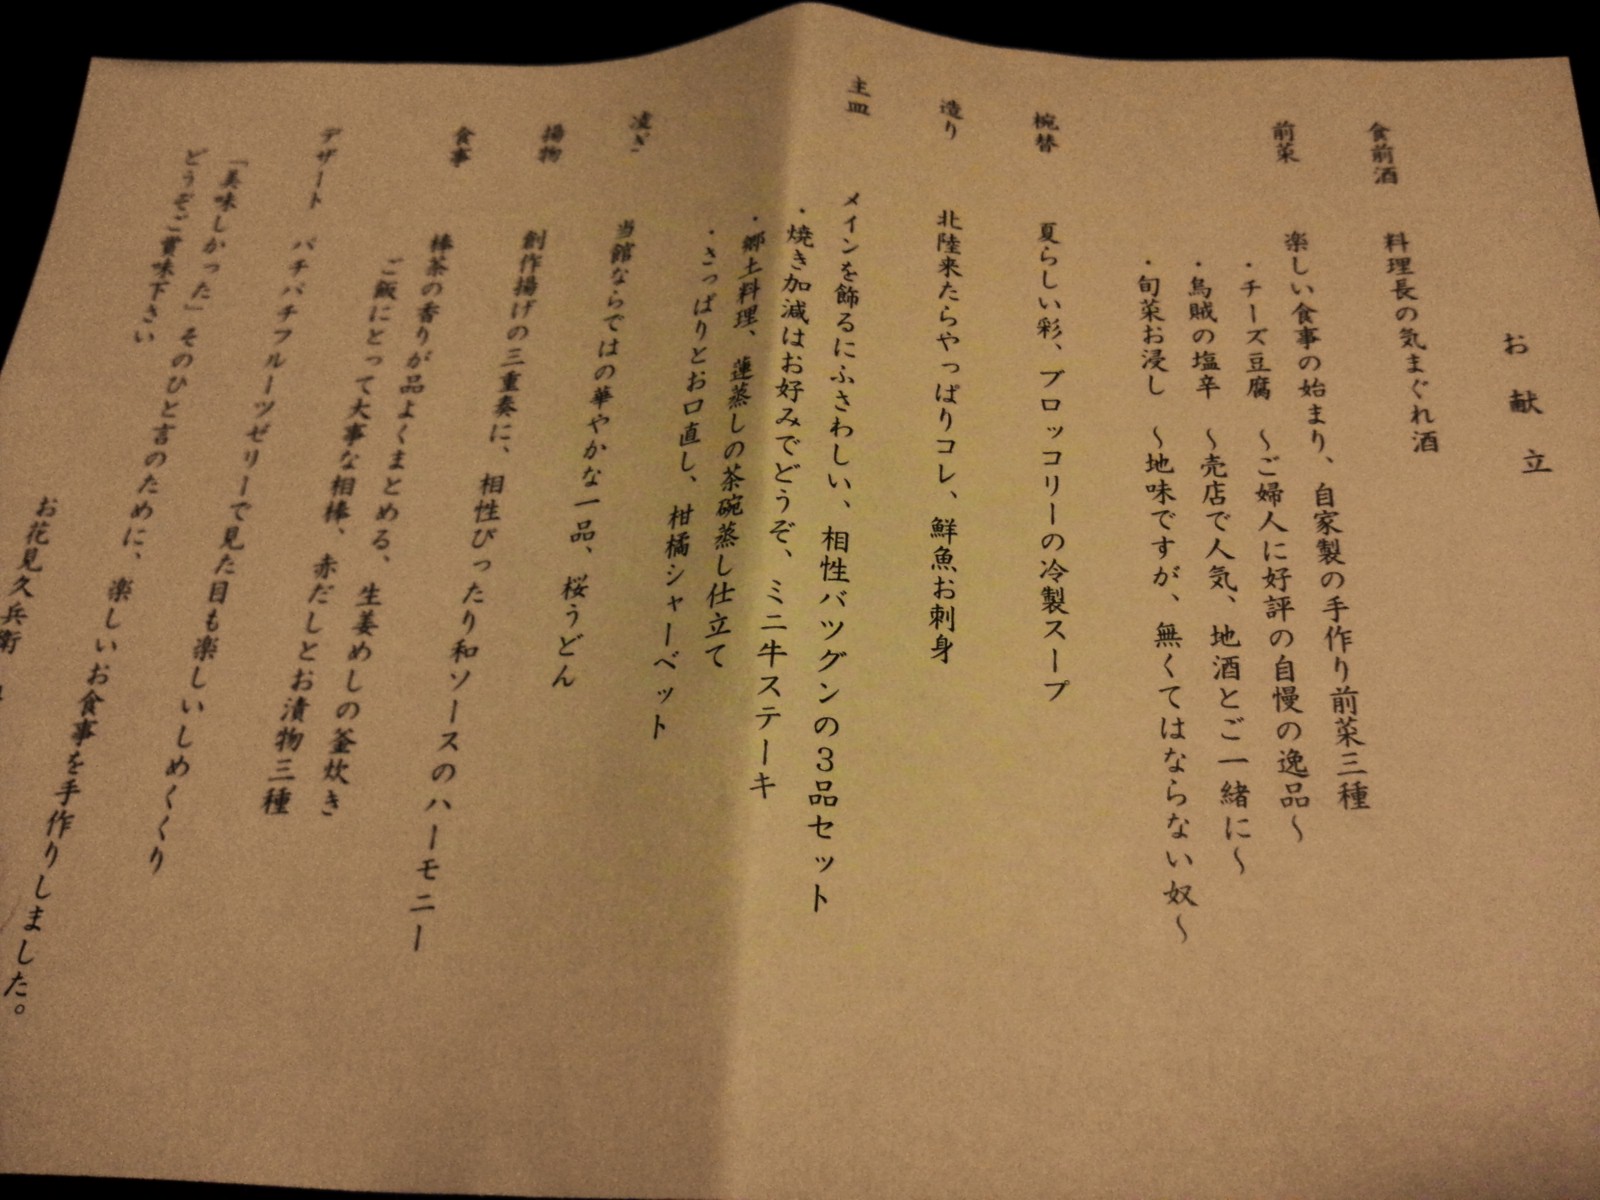 お献立
食前酒 料理長の気まぐれ酒
前菜 楽しい食事の始まり、自家製の手作り前菜三種
・チーズ豆腐 ～ご婦人に好評の自慢の逸品～
・烏賊の塩辛 ～売店で人気、地酒とご一緒に～
・旬菜お浸し ～地味ですが、無くてはならない奴～
椀替 夏らしい彩、ブロッコリーの冷製スープ
造り 北陸来たらやっぱりコレ、鮮魚お刺身
主皿 メインを飾るにふさわしい、相性バツグンの３品セット
・焼き加減はお好みでどうぞ、ミニ牛ステーキ
・郷土料理、蓮蒸しの茶碗蒸し仕立て
・さっぱりとお口直し、柑橘シャーベット
凌ぎ 当館ならではの華やかな一品、桜うどん
揚物 創作揚げの三重奏に、相性ぴったり和ソースのハーモニー
食事 棒茶の香りが品よくまとめる、生姜めしの釜炊き
ご飯にとって大事な相棒、赤だしとお漬物三種
デザート パチパチフルーツゼリーで見た目も楽しいしめくくり
「美味しかった」そのひと言のために、楽しいお食事を手作りしました。
どうぞご賞味下さい
お花見久兵衛